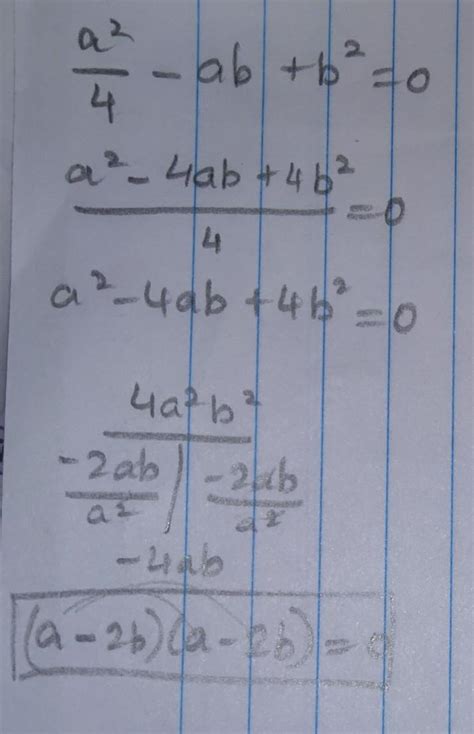 a²/4 - ab + b² = 0
(a² - 4ab + 4b²)/4 = 0
a² - 4ab + 4b² = 0
4a²b²
-2ab/a² | -2ab/a²
-4ab
(a - 2b)(a - 2b) = 0